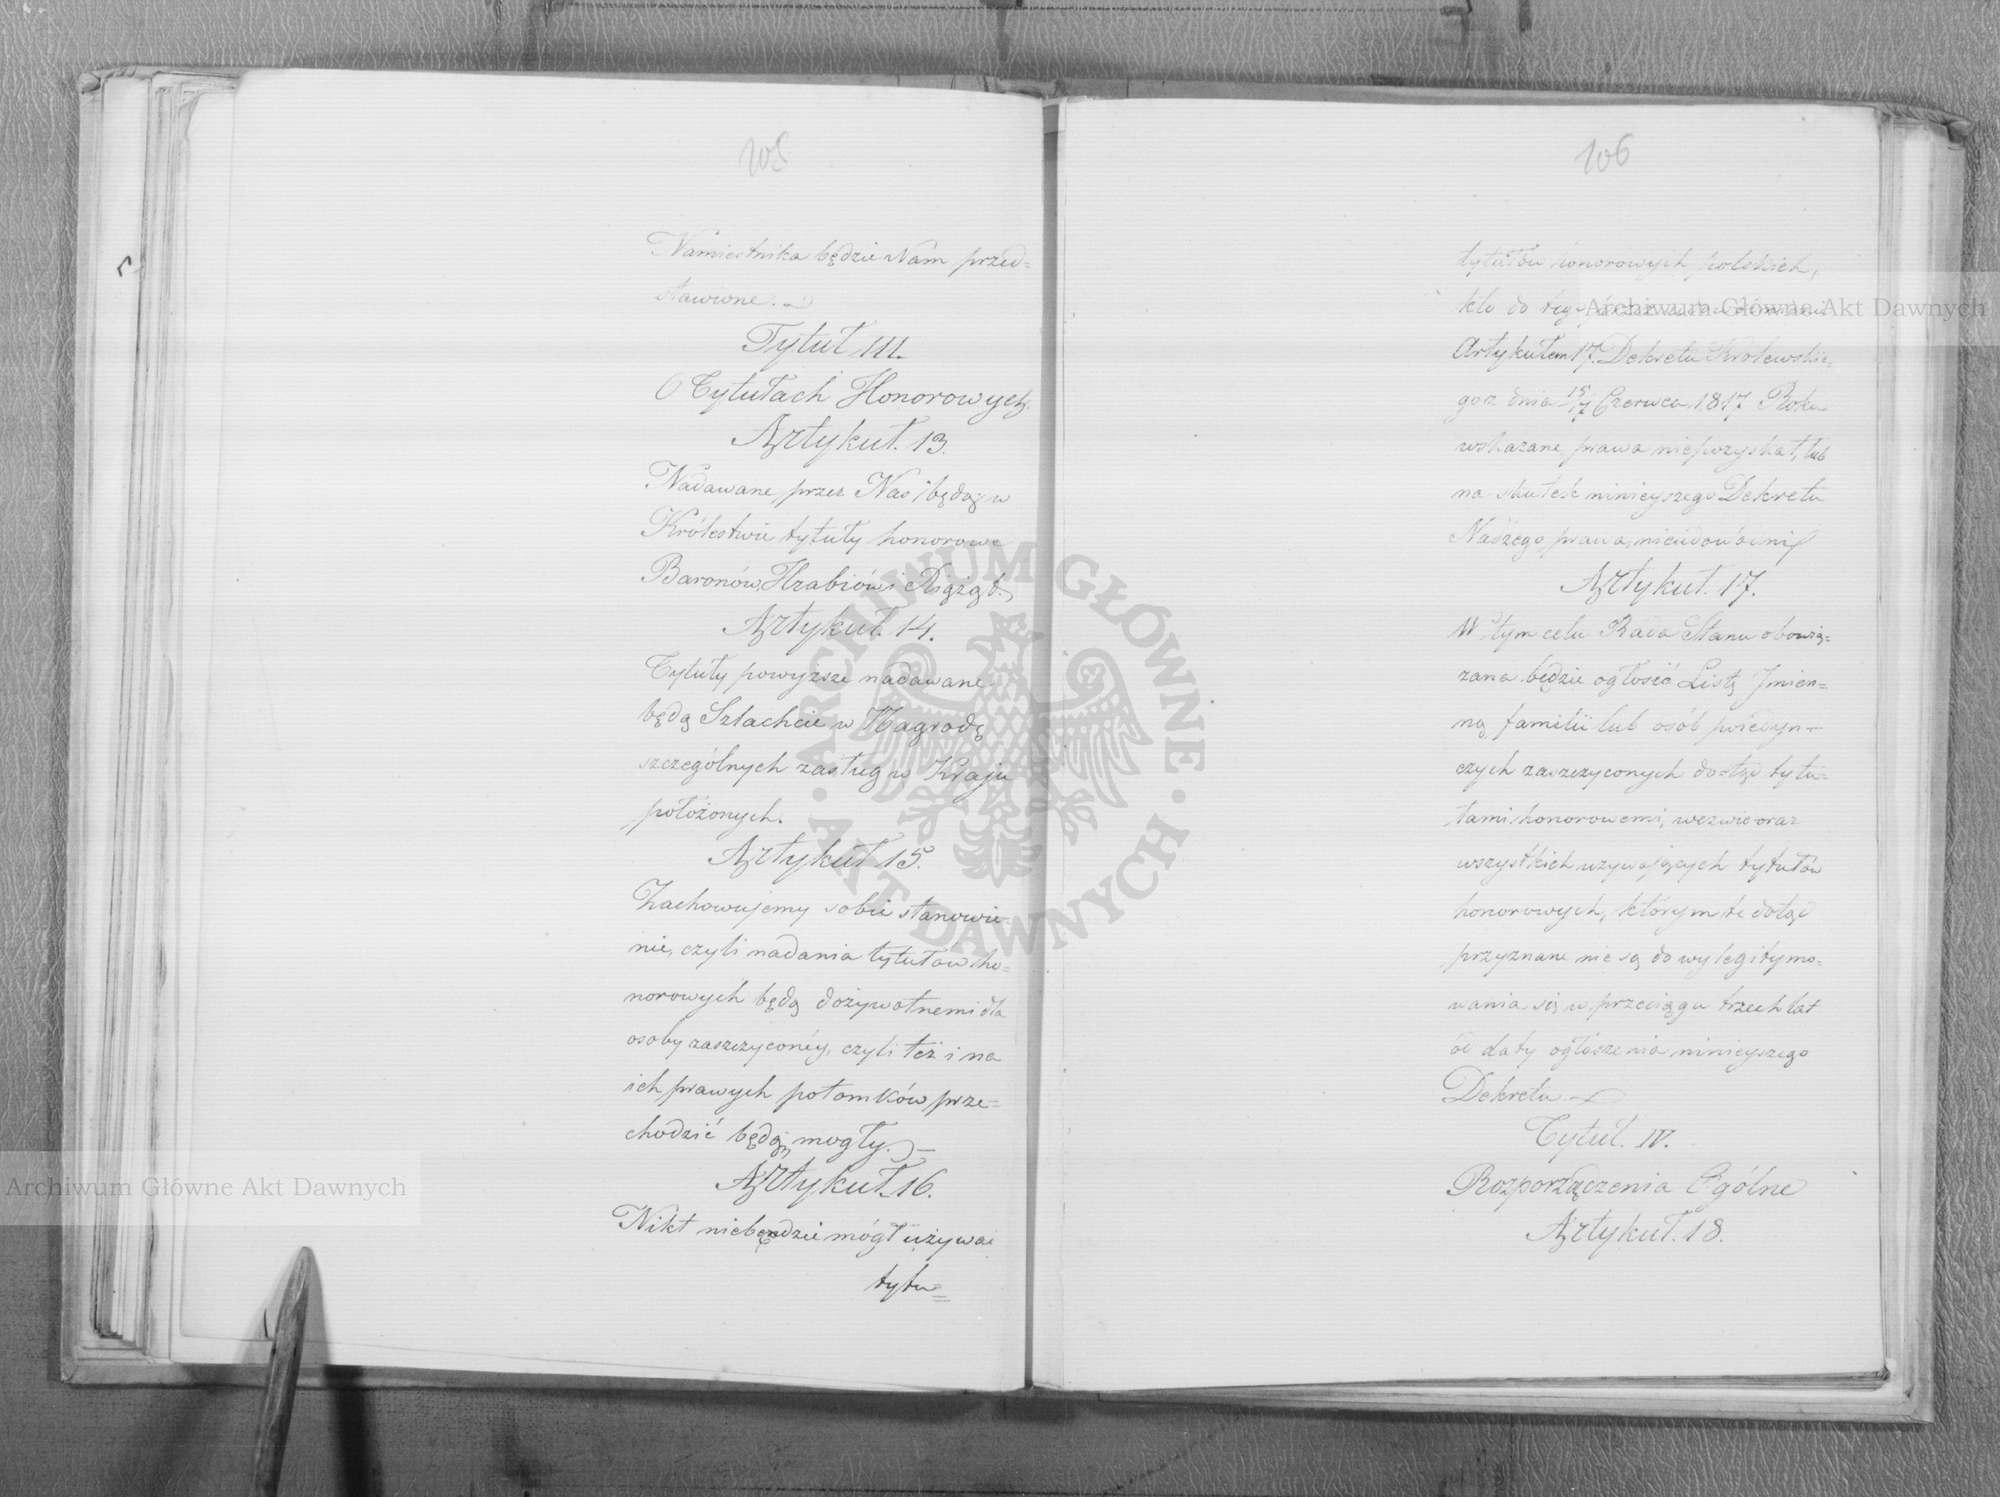 105
Namiestnika będzie Nam przed=
stawione.
Tytuł III.
O Tytułach Honorowych.
Artykuł. 13.
Nadawane przez Nas będą w
Królestwie tytuły honorowe
Baronów, Hrabiów i Xiążąt.
Artykuł. 14.
Tytuły powyższe nadawane
będą Szlachcie w Nagrodę
szczególnych zasług w Kraju
położonych.
Artykuł 15.
Zachowujemy sobie stanowie=
nie, czyli nadania tytułów ho=
norowych będą dożywotnemi dla
osoby zaszczyconéy, czyli też i na
ich prawych potomków prze=
chodzić będą mogły.
Artykuł. 16.
Nikt niebędzie mógł używać
tytu=
106
tytułów honorowych polskich,
kto do tego
Artykułem 17. Dekretu Królewskie=
go z dnia 15/17 Czerwca 1817 Roku
wskazane prawa niepozyskał, lub
na skutek ninieyszego Dekretu
Naszego prawa nieudowodnił
Artykuł. 17.
W tym celu Rada Stanu obowią=
zana będzie ogłosić Listę Jmien=
ną familii lub osób poiedyn=
czych zaszczyconych dotąd tytu=
łami honorowemi, wezwie oraz
wszystkich używających tytułów
honorowych, którym te dotąd
przyznane nie są do wylegitymo=
wania się w przeciągu trzech lat
od daty ogłoszenia ninieyszego
Dekretu
Tytuł. IV.
Rozporządzenia Ogólne
Artykuł. 18.
Archiwum Główne Akt Dawnych
Archiwum Główne Akt Dawnych
ARCHIWUM GŁÓWNE · AKT DAWNYCH ·